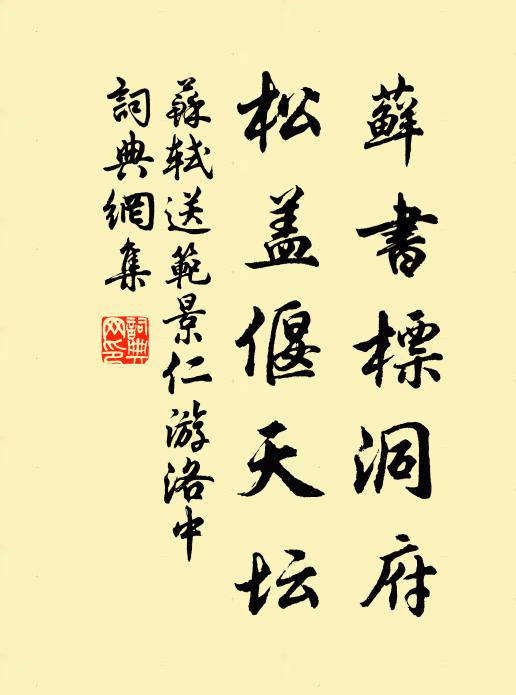 蘚書標洞府
松盖偃天坛
蘇軾送範景仁游洛中
詞典網集
詞典
网印